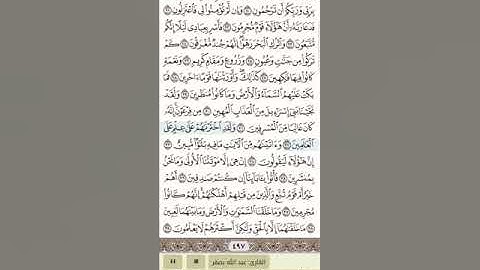 بِرَبِّي وَرَبِّكُمْ أَن تَرْجُمُونِ ٢٠ وَإِن لَّمْ تُؤْمِنُوا۟ لِي فَٱعْتَزِلُونِ ٢١
فَدَعَا رَبَّهُۥٓ أَنَّ هَـٰٓؤُلَآءِ قَوْمٌ مُّجْرِمُونَ ٢٢ فَأَسْرِ بِعِبَادِي لَيْلًا إِنَّكُم
مُّتَّبَعُونَ ٢٣ وَٱتْرُكِ ٱلْبَحْرَ رَهْوًا إِنَّهُمْ جُندٌ مُّغْرَقُونَ ٢٤ كَمْ
تَرَكُوا۟ مِن جَنَّـٰتٍ وَعُيُونٍ ٢٥ وَزُرُوعٍ وَمَقَامٍ كَرِيمٍ ٢٦ وَنَعْمَةٍ
كَانُوا۟ فِيهَا فَـٰكِهِينَ ٢٧ كَذَٰلِكَ وَأَوْرَثْنَـٰهَا قَوْمًا ءَاخَرِينَ ٢٨ فَمَا
بَكَتْ عَلَيْهِمُ ٱلسَّمَآءُ وَٱلْأَرْضُ وَمَا كَانُوا۟ مُنظَرِينَ ٢٩ وَلَقَدْ
نَجَّيْنَا بَنِيٓ إِسْرَٰٓءِيلَ مِنَ ٱلْعَذَابِ ٱلْمُهِينِ ٣٠ مِن فِرْعَوْنَ إِنَّهُۥ
كَانَ عَالِيًا مِّنَ ٱلْمُسْرِفِينَ ٣١ وَلَقَدِ ٱخْتَرْنَـٰهُمْ عَلَىٰ عِلْمٍ عَلَى
ٱلْعَـٰلَمِينَ ٣٢ وَءَاتَيْنَـٰهُم مِّنَ ٱلْـَٔايَـٰتِ مَا فِيهِ بَلَـٰٓؤٌا۟ مُّبِينٌ ٣٣
إِنَّ هَـٰٓؤُلَآءِ لَيَقُولُونَ ٣٤ إِنْ هِيَ إِلَّا مَوْتَتُنَا ٱلْأُولَىٰ وَمَا نَحْنُ
بِمُنشَرِينَ ٣٥ فَأْتُوا۟ بِـَٔابَآئِنَآ إِن كُنتُمْ صَـٰدِقِينَ ٣٦ أَهُمْ
خَيْرٌ أَمْ قَوْمُ تُبَّعٍ وَٱلَّذِينَ مِن قَبْلِهِمْ أَهْلَكْنَـٰهُمْ إِنَّهُمْ كَانُوا۟
مُجْرِمِينَ ٣٧ وَمَا خَلَقْنَا ٱلسَّمَـٰوَٰتِ وَٱلْأَرْضَ وَمَا بَيْنَهُمَا لَـٰعِبِينَ ٣٨
مَا خَلَقْنَـٰهُمَآ إِلَّا بِٱلْحَقِّ وَلَـٰكِنَّ أَكْثَرَهُمْ لَا يَعْلَمُونَ ٣٩
٤٩٧
القارئ: عبد الله بصفر